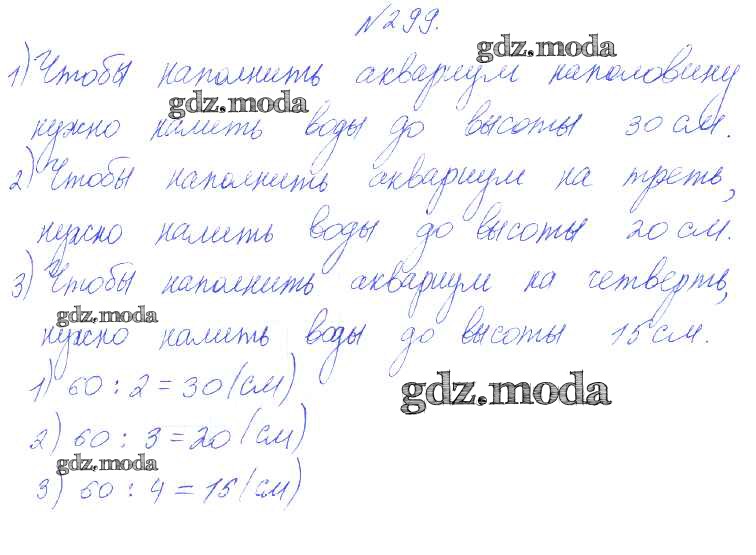 №299.
gdz.moda
1) Чтобы наполнить аквариум наполовину
gdz.moda
нужно налить воды до высоты 30 см.
2) Чтобы наполнить аквариум на треть,
нужно налить воды до высоты 20 см.
3) Чтобы наполнить аквариум на четверть,
gdz.moda
нужно налить воды до высоты 15 см.
1) 60 : 2 = 30 (см)
gdz.moda
2) 60 : 3 = 20 (см)
gdz.moda
3) 60 : 4 = 15 (см)